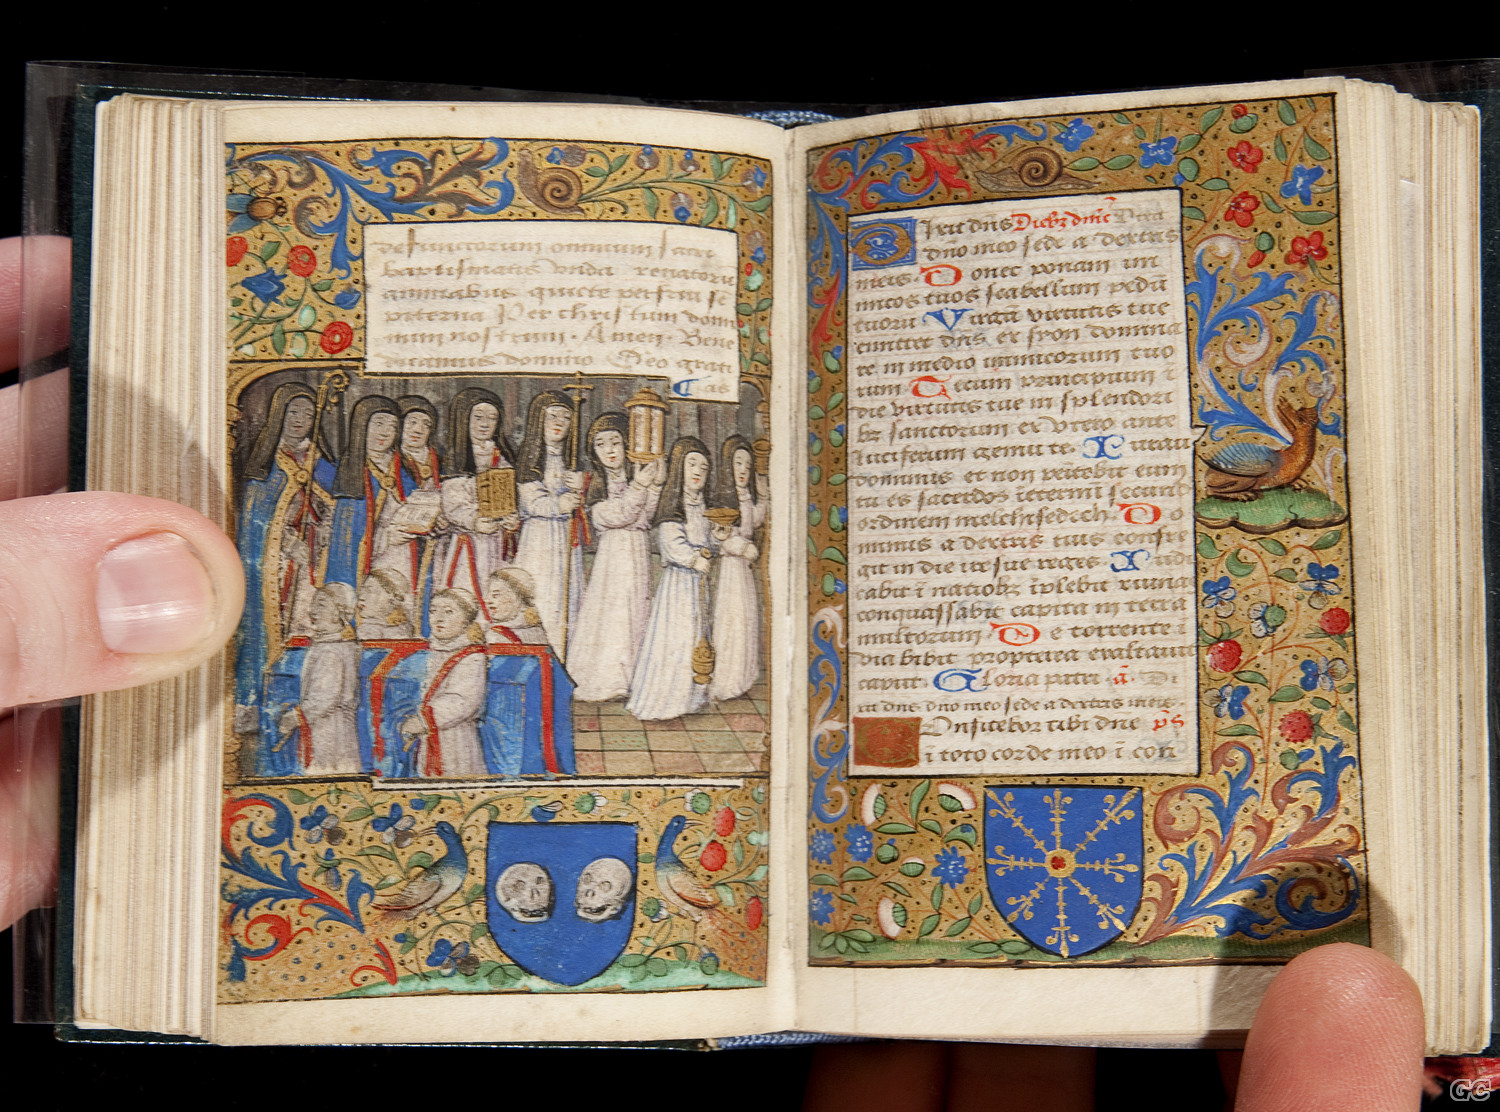 defunctorum omnium sacri
baptismatis vnda renatoru
animabus quiete perfrui se
piterna Per christum domi
num nostrum. Amen. Bene
dicamus domino Deo grati
as
Dixit dn̄s Diebꝫ dn̄ic
dn̄o meo sede a dextris
meis. Donec ponam im
micos tuos scabellum pedū
tuorū Virgā virtutis tue
emittet dn̄s ex syon domina
re in medio inimicorum tuo
rum Tecum principium ī
die virtutis tue in splendori
bꝫ sanctorum ex vtero ante
luciferum genui te. Iurauit
dominus et non penitebit eum
tu es sacerdos īeternū secund
ordinem melchisedech. Do
minus a dextris tuis confre
git in die ire sue reges. Iudi
cabit ī natiobꝫ īplebit ruina
conquassabit capita in terra
multorum De torrente ī
via bibit propterea exaltauit
caput. Gloria patri a. Di
xit dn̄s dn̄o meo sede a dextris meis.
Onfitebor tibi dn̄e ps̄
ī toto corde meo ī con
GC